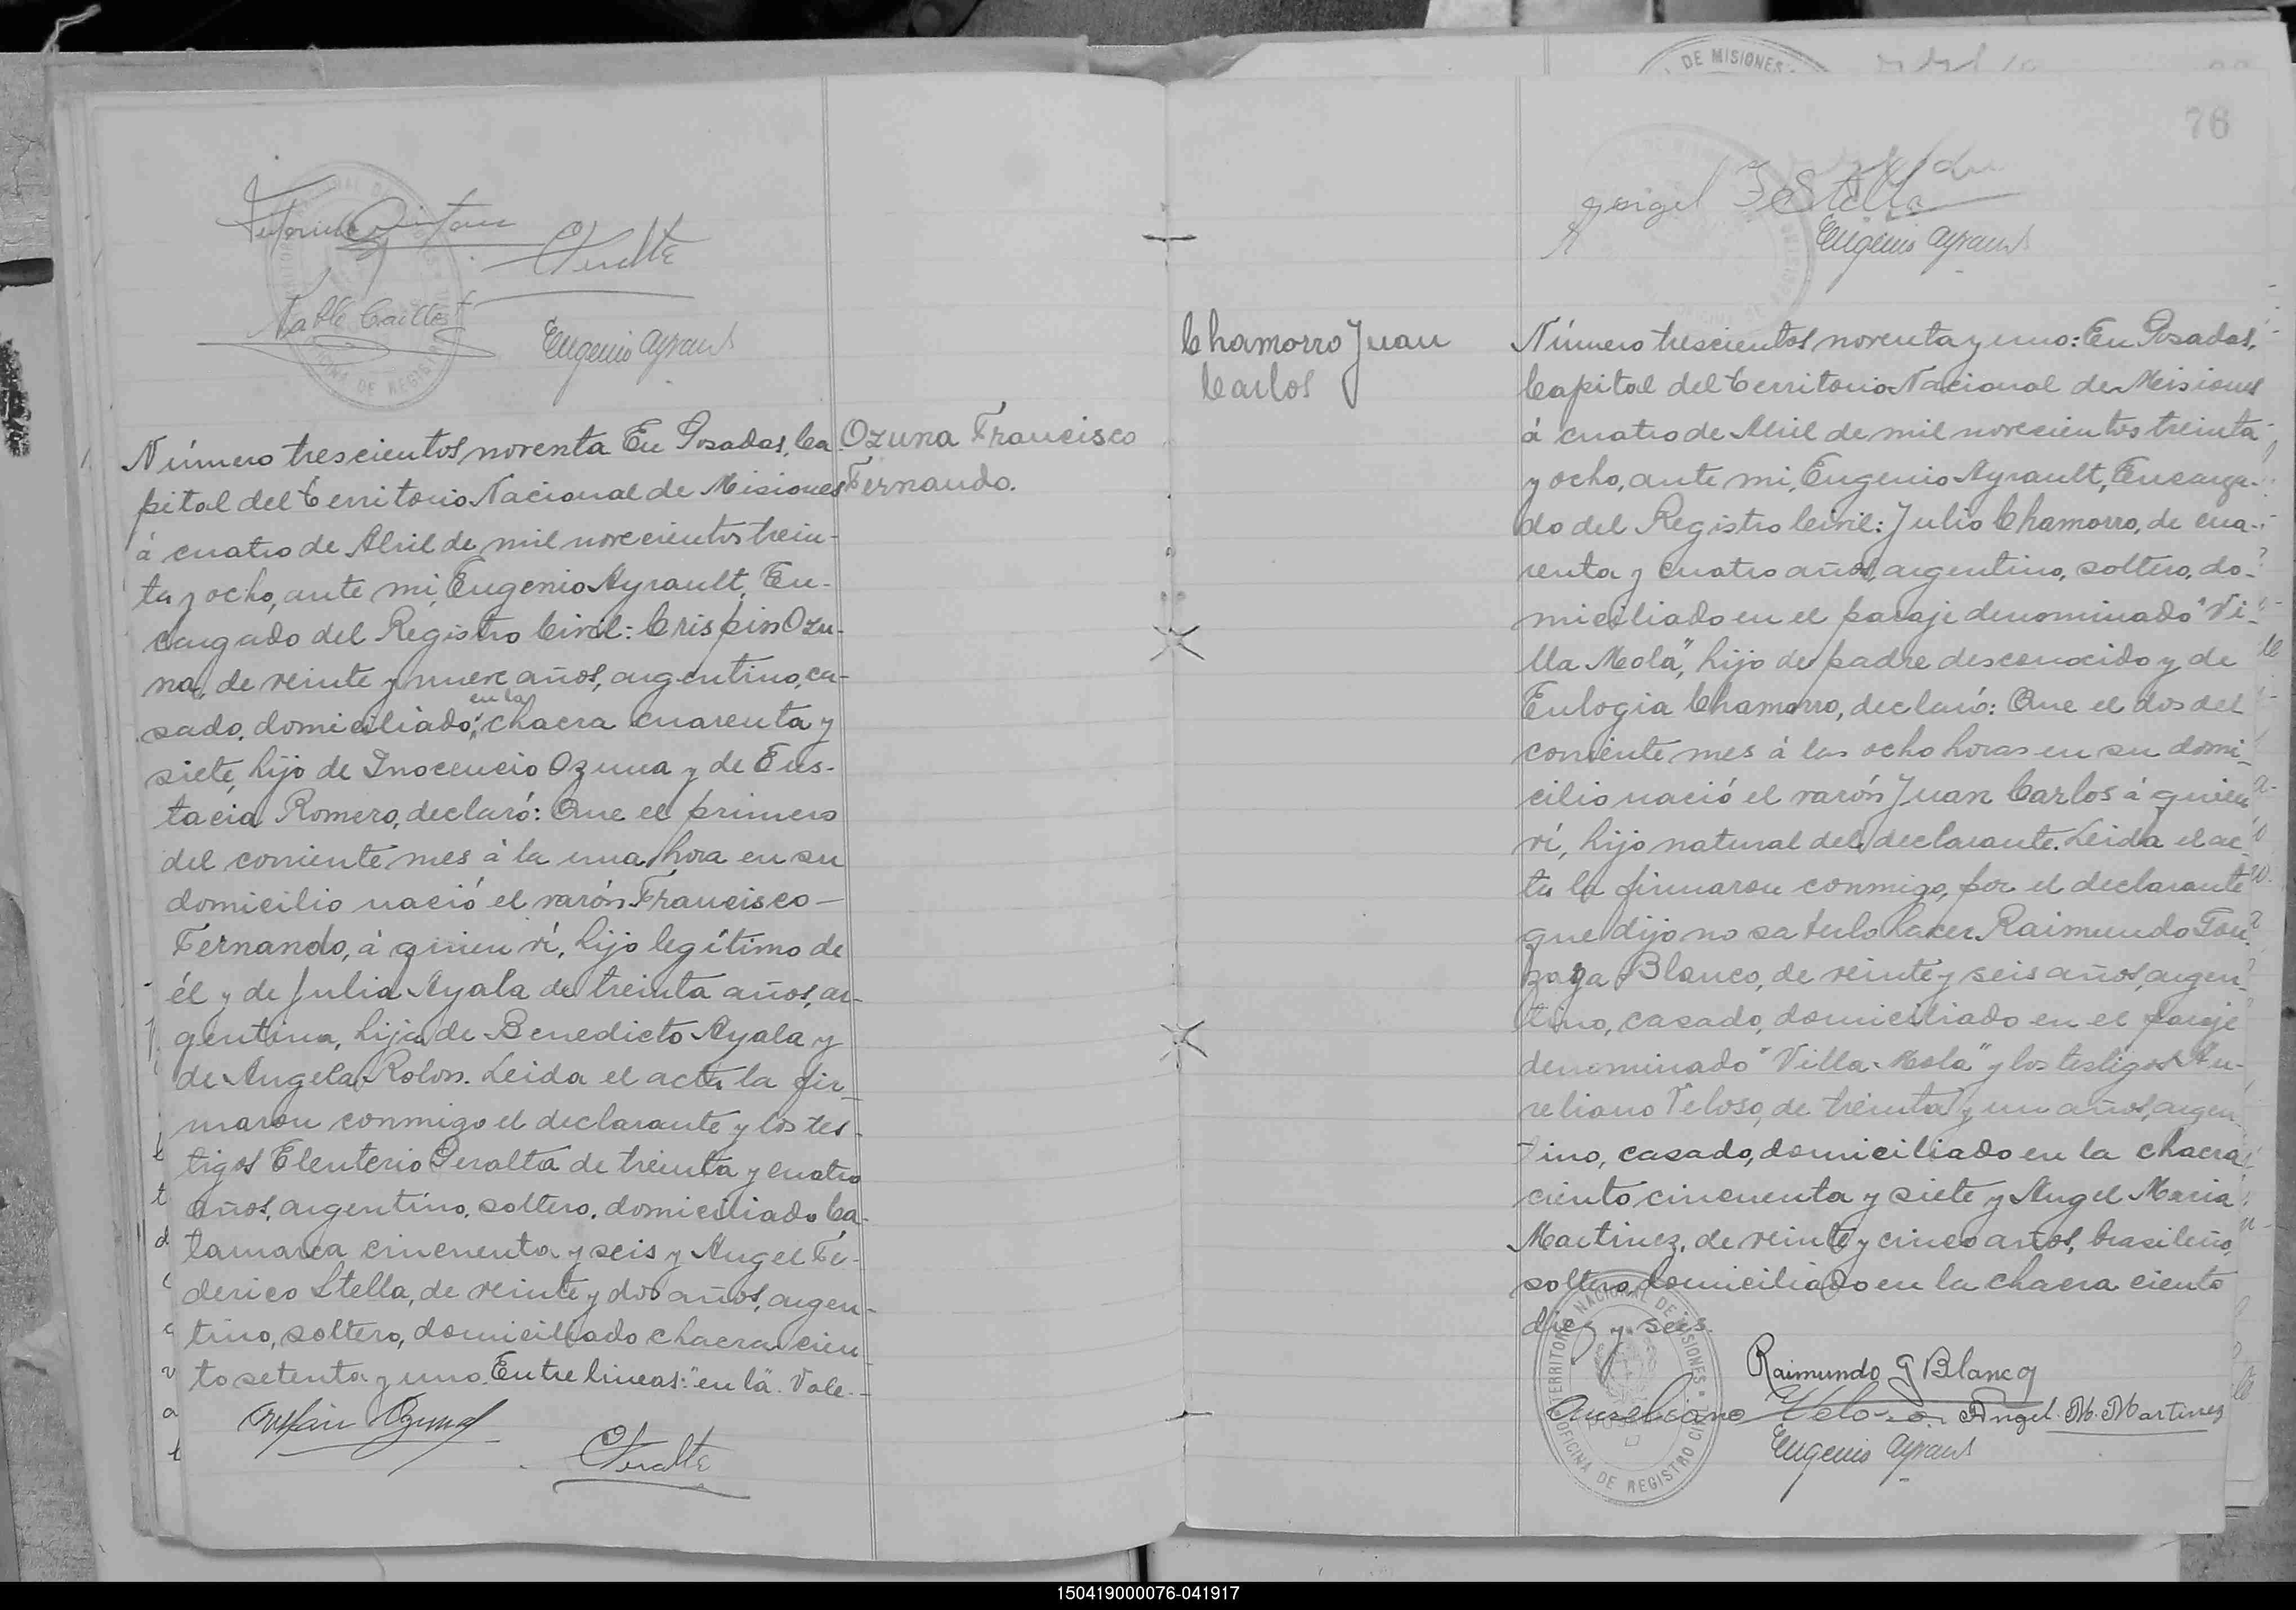 Peralte
Pablo Caillot
Eugenio Ayrault
Número trescientos noventa En Posadas, Ca
pital del Territorio Nacional de Misiones
á cuatro de Abril de mil novecientos trein-
ta y ocho, ante mi, Eugenio Ayrault, En-
cargado del Registro Civil: Crispin Ozu-
na, de veinte y nueve años, argentino, ca-
en la
sado, domiciliado, chacra cuarenta y
siete, hijo de Inocencio Ozuna y de Eus-
tacia Romero, declaró: Que el primero
del corriente mes á la una hora en su
domicilio nació el varón Francisco
Fernando, á quien ví, hijo legítimo de
él y de Julia Ayala de treinta años, ar-
gentina, hija de Benedicto Ayala y
de Angela Rolon. Leida el acta la fir-
maron conmigo el declarante y los tes-
tigos Eleuterio Peralta de treinta y cuatro
años, argentino, soltero, domiciliado Ca-
tamarca cincuenta y seis y Angel Fe-
derico Stella, de veinte y dos años, argen-
tino, soltero, domiciliado chacra cien-
to setenta y uno. Entre lineas: "en la". Vale.-
Crispin Ozuna
Peralte
Ozuna Francisco
Fernando.
DE MISIONES
76
Angel F Stella
Eugenio Ayrault
Chamorro Juan
Carlos
Número trescientos noventa y uno: En Posadas,
Capital del Territorio Nacional de Misiones
á cuatro de Abril de mil novecientos treinta
y ocho, ante mi, Eugenio Ayrault, Encarga-
do del Registro Civil: Julio Chamorro, de cua-
renta y cuatro años, argentino, soltero, do-
miciliado en el paraje denominado "Vi-
lla Mola", hijo de padre desconocido y de
Eulogia Chamorro, declaró: Que el dos del
corriente mes á las ocho horas en su domi-
cilio nació el varón Juan Carlos á quien
ví, hijo natural del declarante. Leida el ac-
ta la firmaron conmigo, por el declarante
que dijo no saberlo hacer Raimundo
Blanco, de veinte y seis años, argen-
tino, casado, domiciliado en el paraje
denominado "Villa Mola" y los testigos Au-
reliano Veloso, de treinta y un años, argen
tino, casado, domiciliado en la chacra
ciento cincuenta y siete y Angel Maria
Martinez, de veinte y cinco años, brasileño,
soltero, domiciliado en la chacra ciento
diez y seis.
Raimundo G Blanco
Aureliano Veloso Angel. M. Martinez
Eugenio Ayrault
TERRITORIO NACIONAL DE MISIONES
OFICINA DE REGISTRO CIVIL
150419000076-041917